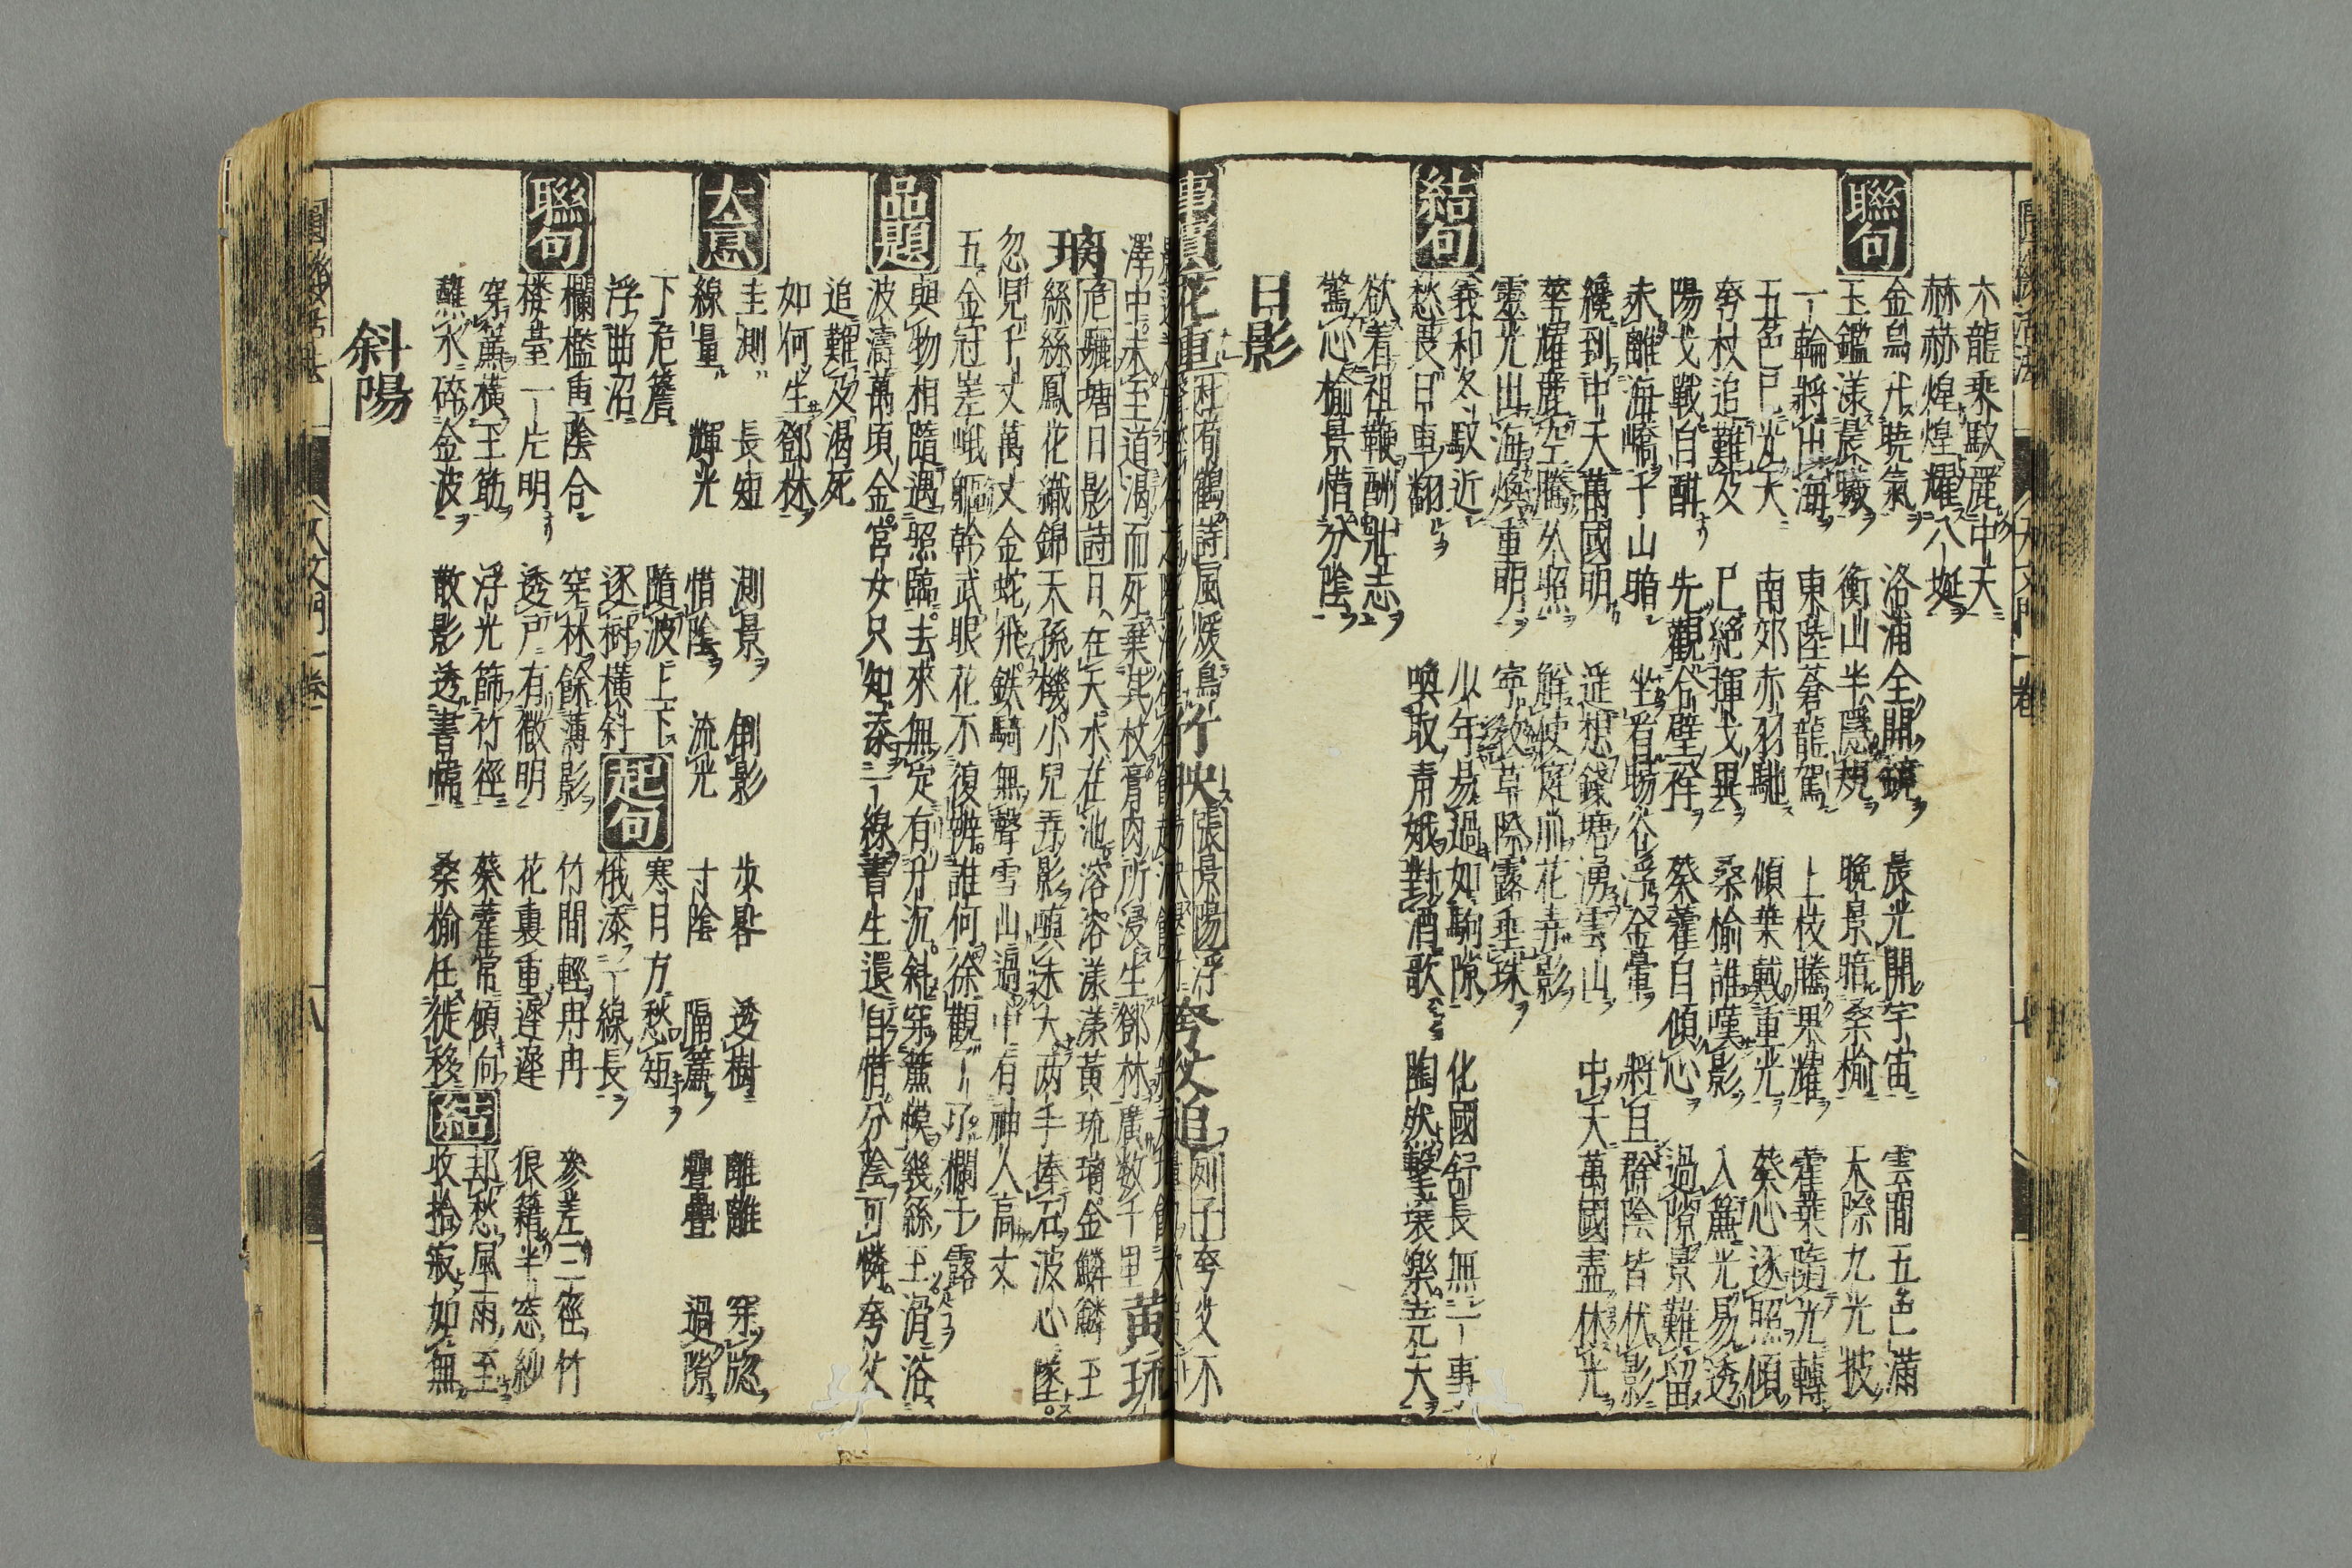 六龍乘馭麗中天
赫赫煌煌耀八埏
聯句
金烏升曉氣 洛浦全開鏡 晨光開宇宙 雲間五色滿
玉鑑漾晨曦 衡山半隱規 晚景暗桑榆 天際九光披
一輪將出海 東陸蒼龍駕 上枝騰果耀 藿葉隨光轉
五色已光天 南郊赤羽馳 傾葉戴重光 葵心逐照傾
夸杖追難及 已絕揮戈異 桑榆誰嘆影 入簾光易透
陽戈戰自酣 先觀合璧祥 葵藿自傾心 過隙景難留
未離海嶠千山暗 坐看暘谷浮金暈 將旦群陰皆伏影
纔到中天萬國明 遙想錢塘湧雲山 中天萬國盡休光
華耀麗空騰久照 解使庭前花弄影
靈光出海煥重明 寧教草際露垂珠
結句
義和冬馭近 少年易過如駒隙 化國舒長無一事
愁畏日車翻 喚取青娥對酒歌 陶然擊壤樂堯天
欲着祖鞭酬壯志
驚心榆景惜分陰
日影
事實 花重 杜荀鶴詩風暖鳥 竹映 張景陽浮 夸父追 列子夸父不
澤中未至道渴而死棄其杖膏肉所浸生鄧林廣数千里 黃琉
璃 危驪塘日影詩曰在天水在池溶溶漾漾黃琉璃金鱗鱗玉
絲絲鳳花織錦天孫機小兒弄影嗔未大两手捧石波心墜
忽見千丈萬丈金蛇飛鉄騎無聲雪山過中有神人高丈
五金冠嵳峨軀幹武眼花不復辨誰何徐觀一一了欄干露
品題
與物相隨遇照臨去來無定有升沉斜穿簾幙幾絲玉滑浴
波濤萬頃金宮女只知添一線書生還自惜分陰可憐夸父
追難及渴死
如何生鄧林
大意
圭測 長短 測景 倒影 步晷 透樹 離離 穿牎
線量 輝光 惜陰 流光 寸陰 隔簾 疊疊 過隙
下危簷 隨波上下
浮曲沼 逐樹橫斜
起句
寒日方愁短
俄添一線長
聯句
欄檻重陰合 穿林餘薄影 竹間輕冉冉 參差三徑竹
楼臺一片明 透戸有微明 花裏重遲遲 狼籍半窓紗
穿簾橫玉筯 浮光篩竹徑 葵藿常傾向
蘸水碎金波 散影透書幃 桑榆任徙移
結
却愁風雨至
收拾寂如無
斜陽